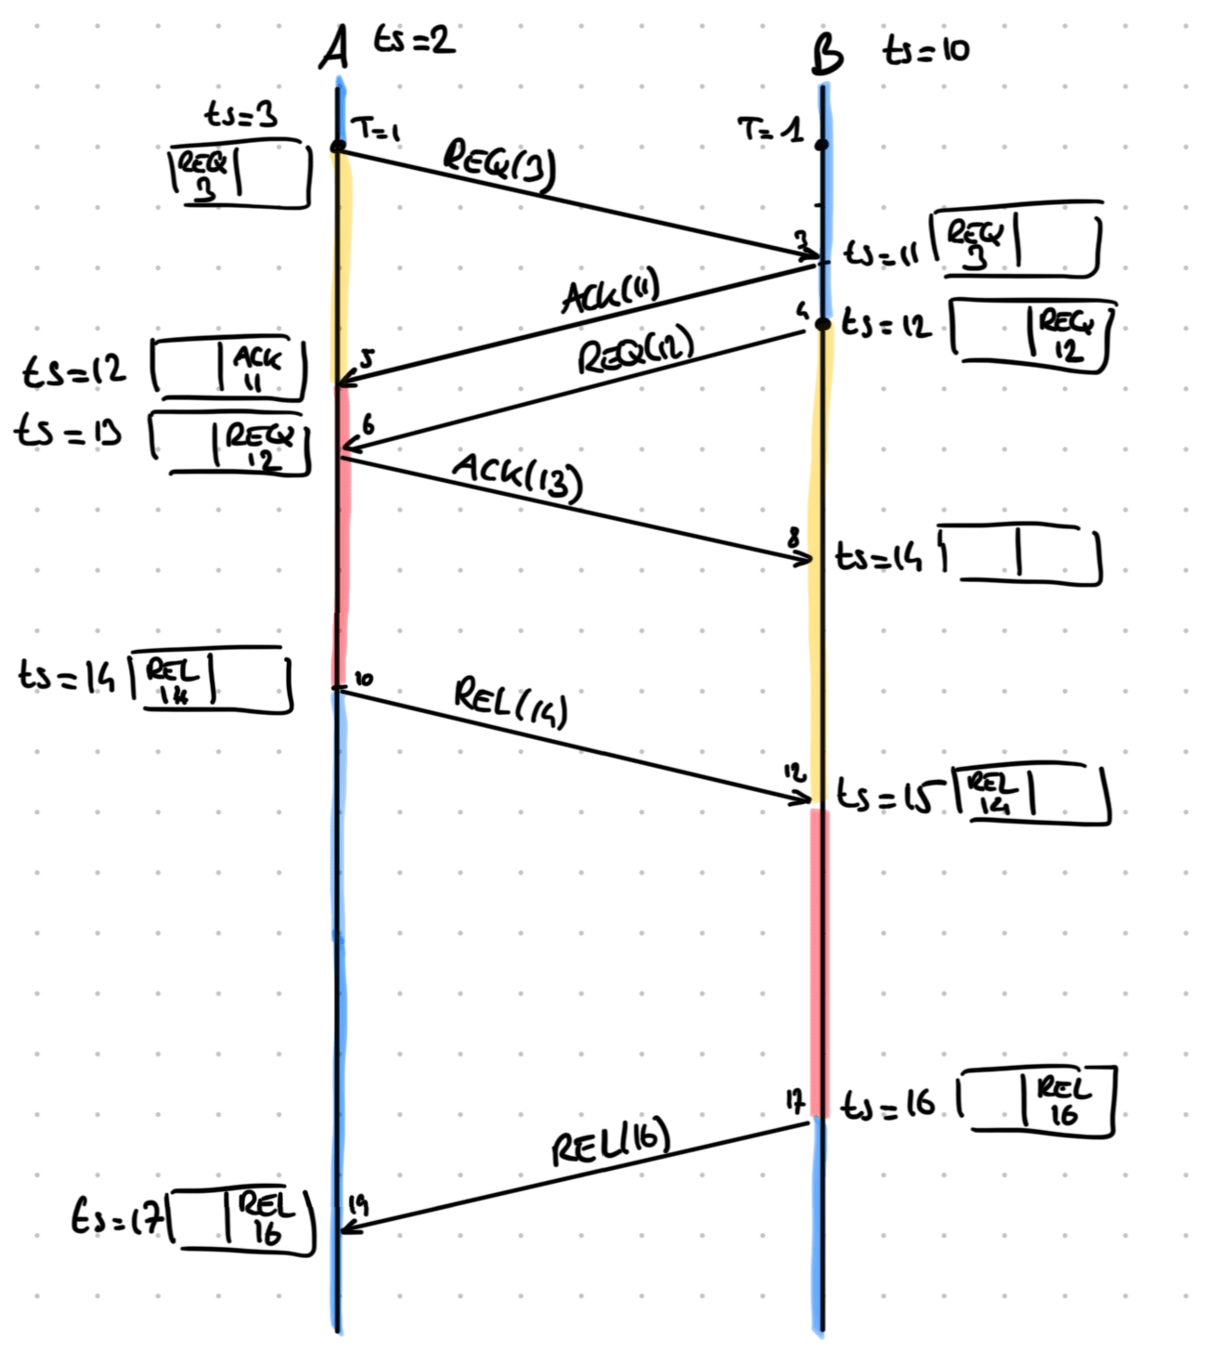 A ts=2 B ts=10
ts=3 T=1 T=1
REQ 3
REQ(3)
3 ts=11 REQ 3
ACK(11)
4 ts=12 REQ 12
REQ(12)
ts=12 ACK 11 5
ts=13 REQ 12 6
ACK(13)
8 ts=14
ts=14 REL 14 10
REL(14)
12 ts=15 REL 14
17 ts=16 REL 16
REL(16)
ts=17 REL 16 19